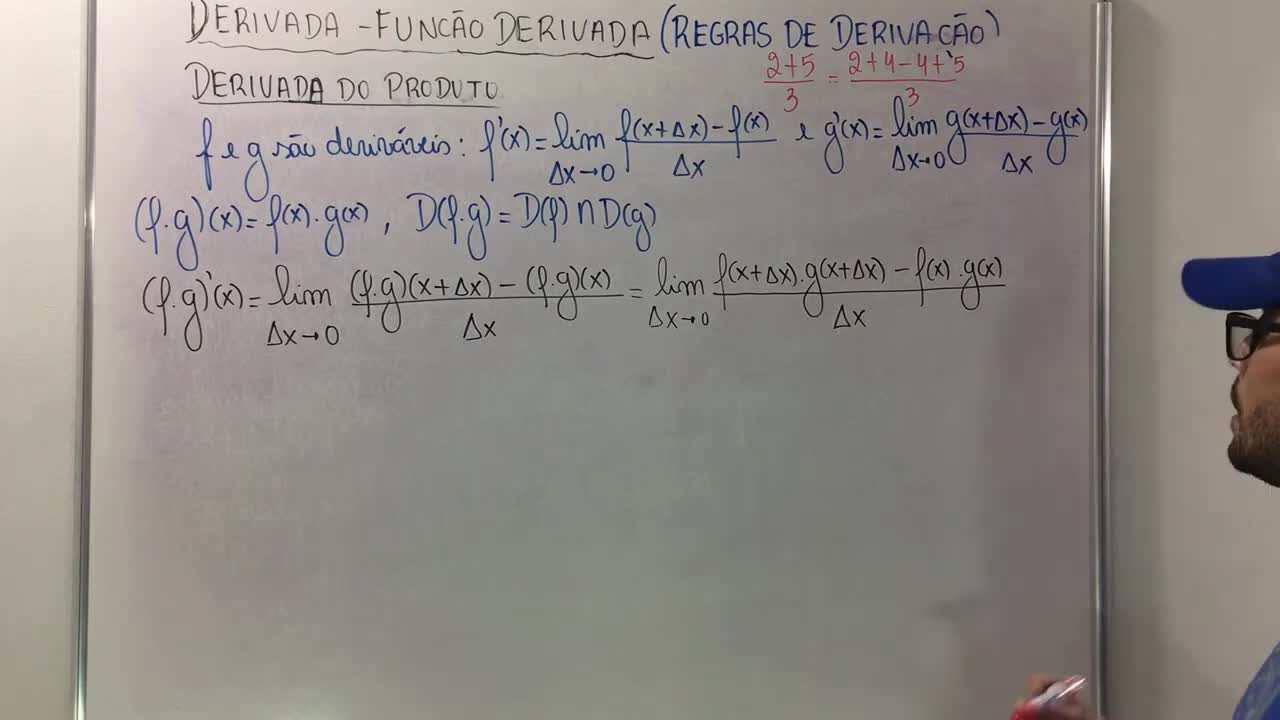 DERIVADA - FUNCÃO DERIVADA (REGRAS DE DERIVAÇÃO)
DERIVADA DO PRODUTO
2+5/3 = 2+4-4+5/3
f e g são deriváveis: f'(x) = lim Δx→0 f(x+Δx) - f(x)/Δx e g'(x) = lim Δx→0 g(x+Δx) - g(x)/Δx
(f.g)(x) = f(x).g(x), D(f.g) = D(f) ∩ D(g)
(f.g)'(x) = lim Δx→0 (f.g)(x+Δx) - (f.g)(x)/Δx = lim Δx→0 f(x+Δx).g(x+Δx) - f(x).g(x)/Δx